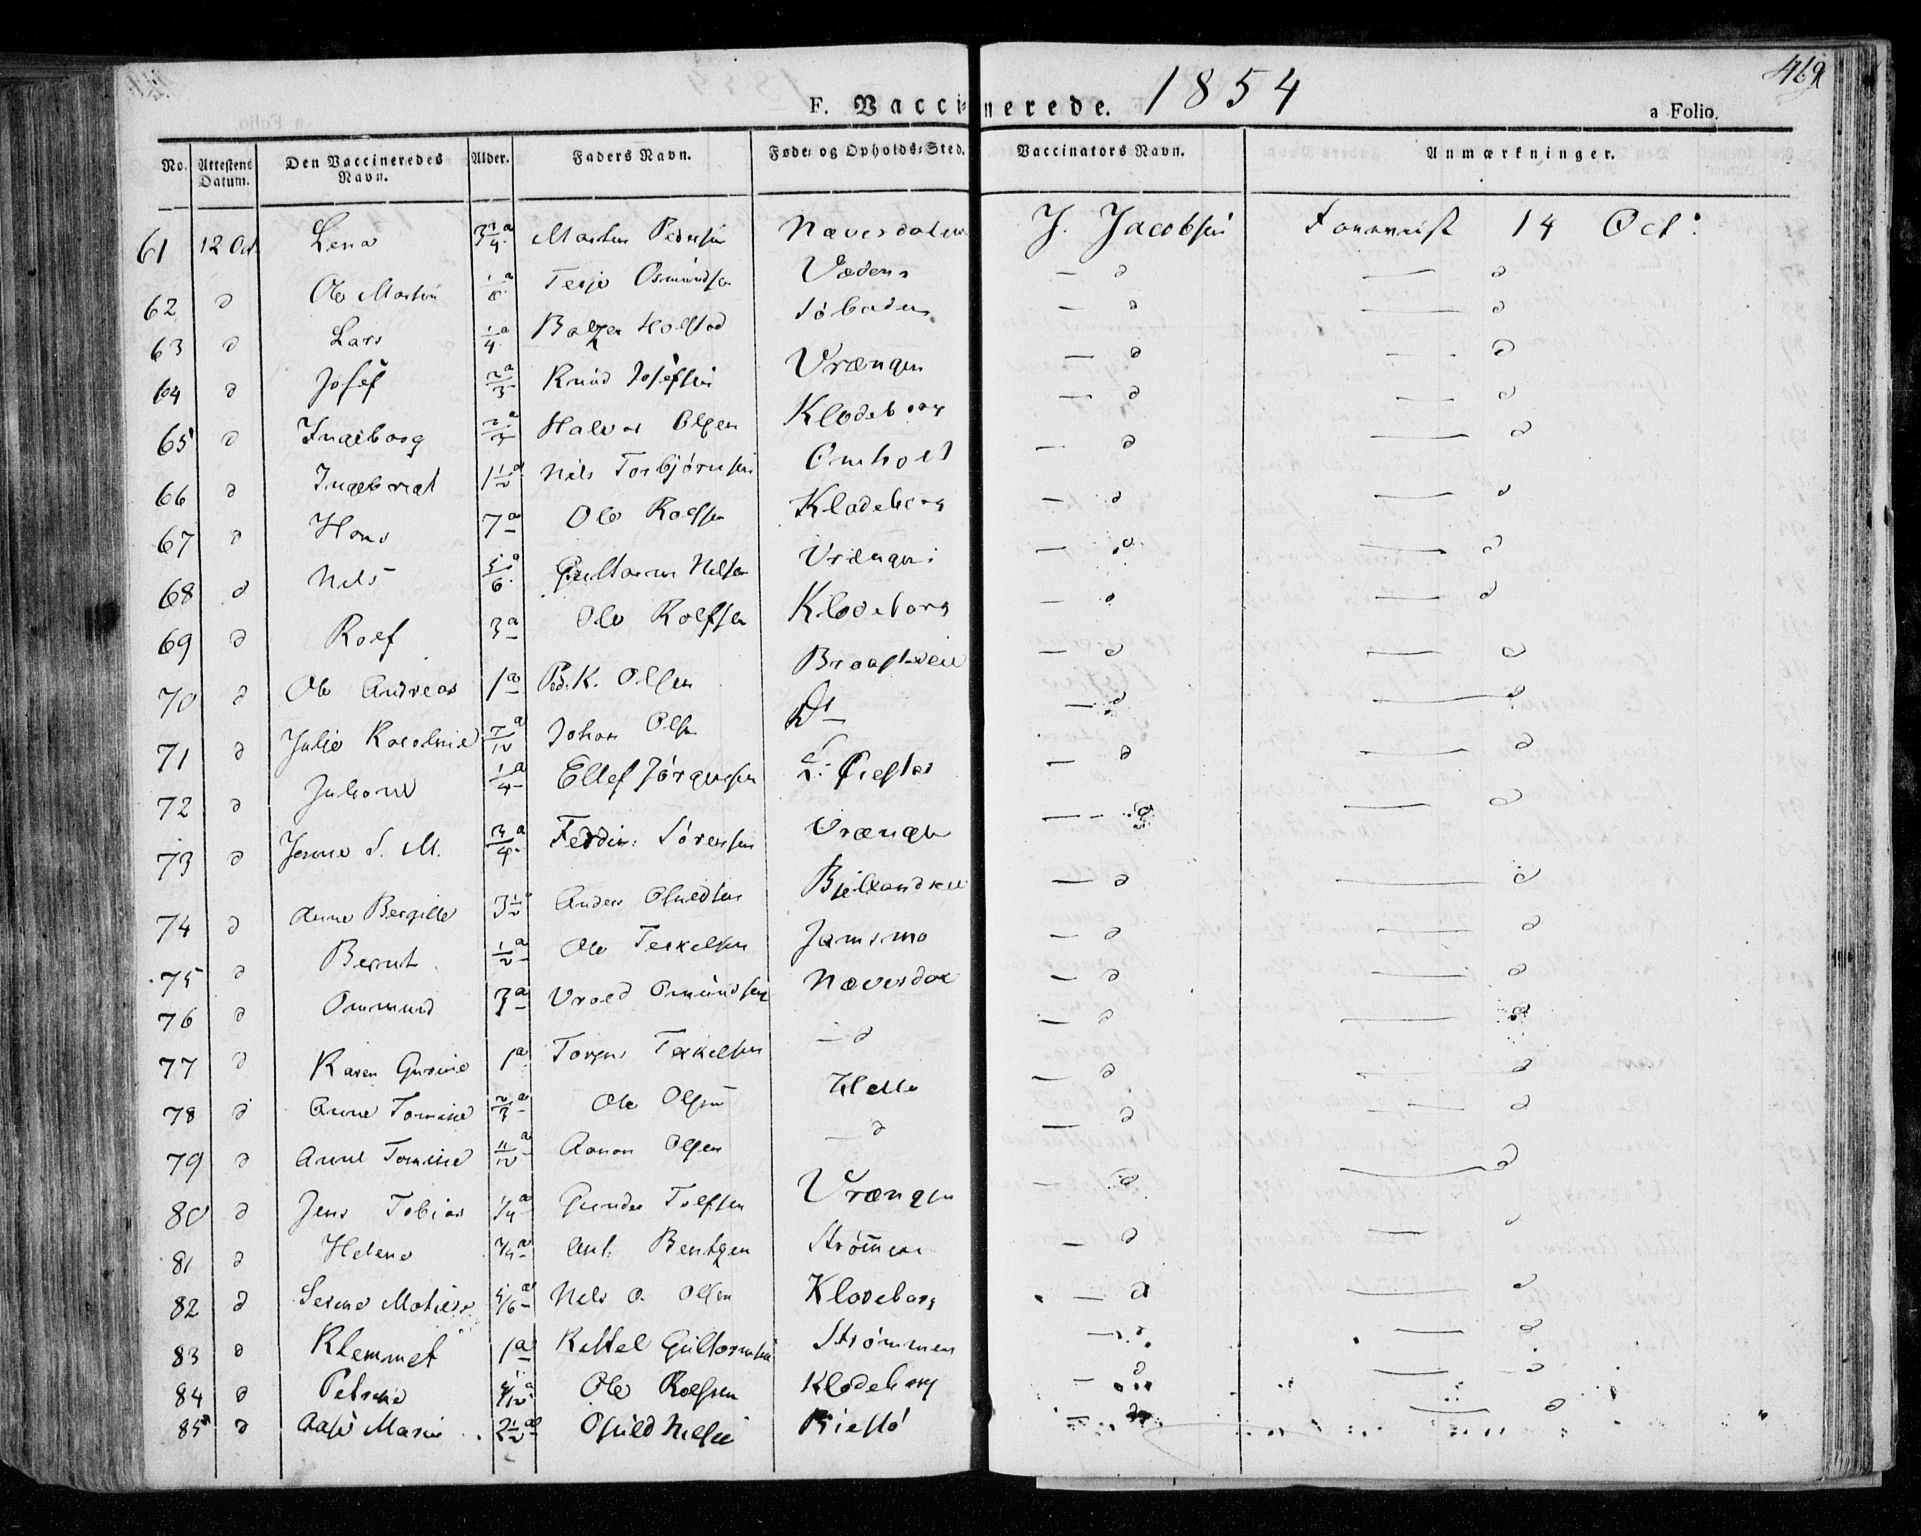 469
F. Vaccinerede. 1854 a Folio.
No. Attestens Datum. Den Vaccineredes Navn. Alder. Faders Navn. Føde- og Opholds-Sted. Vaccinators Navn. Anmærkninger.
61 12 Oct. Lena 3 3/4 a Pedersen Næverdalen J. Jacobsen Foreviist 14 Oct:
62 d Ole Martin Terje Osmundsen — d — d
63 d Lars 1/4 a Holstad — d — d
64 d Josef 2/3 a Knud Josefsen Vrængen — d — d
65 d Ingeborg Halvor Olsen Klodeborg — d — d
66 d Ingeborget 1 1/2 a Nils Torbjørnsen Omholt — d — d
67 d Hans 7 a Ole Rolfsen Klodeborg — d — d
68 d Nils 5/6 a Guttorm Nilsen Vrængen — d — d
69 d Rolf 3 a Ole Rolfsen Klodeborg — d — d
70 d Ole Andreas 1 a Ped. K. Olsen Braastveit — d — d
71 d Julie 7/12 a Johan Olsen Do — d — d
72 d Juliane 1/4 a Ellef Jørgensen — d — d
73 d S. M. 3/4 a Ferdin: Sørensen Vrængen — d — d
74 d Anne Bergitte 3 1/2 Anders — d — d
75 d Bernt 1/2 a Ole Terkelsen — d — d
76 d Ommund 3 a Vrold Omundsen Næverdal — d — d
77 d Karen Gurine 1 a Terkelsen — d — d — d
78 d Anne Tomine 2/3 a Ole Olsen — d — d
79 d Anne Tomine 11/12 a Aanon Olsen — d — d — d
80 d Jens Tobias 1/4 a Gunder Tolfsen Vrængen — d — d
81 d Helene 3/4 a Ant. Bentzen Strømmen — d — d
82 d Serine 5/6 a Nils O. Olsen Klodeborg — d — d
83 d Klemmet 1 a Kittel Guttormsen Strømmen — d — d
84 d Petrine Ole Rolfsen Klodeborg — d — d
85 d Aase Marie 2 1/2 a Osuld Nilsen — d — d